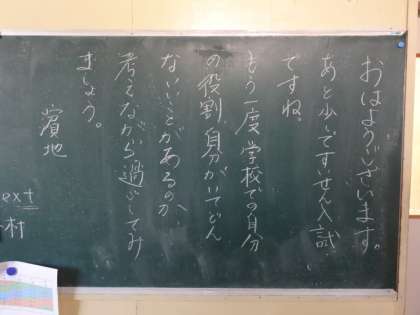 おはようございます。
あと少しですいせん入試
ですね。
もう一度 学校での自分
の役割、自分がいてどん
ないいことがあるのか
考えながら過ごしてみ
ましょう。
濱地
ext
村